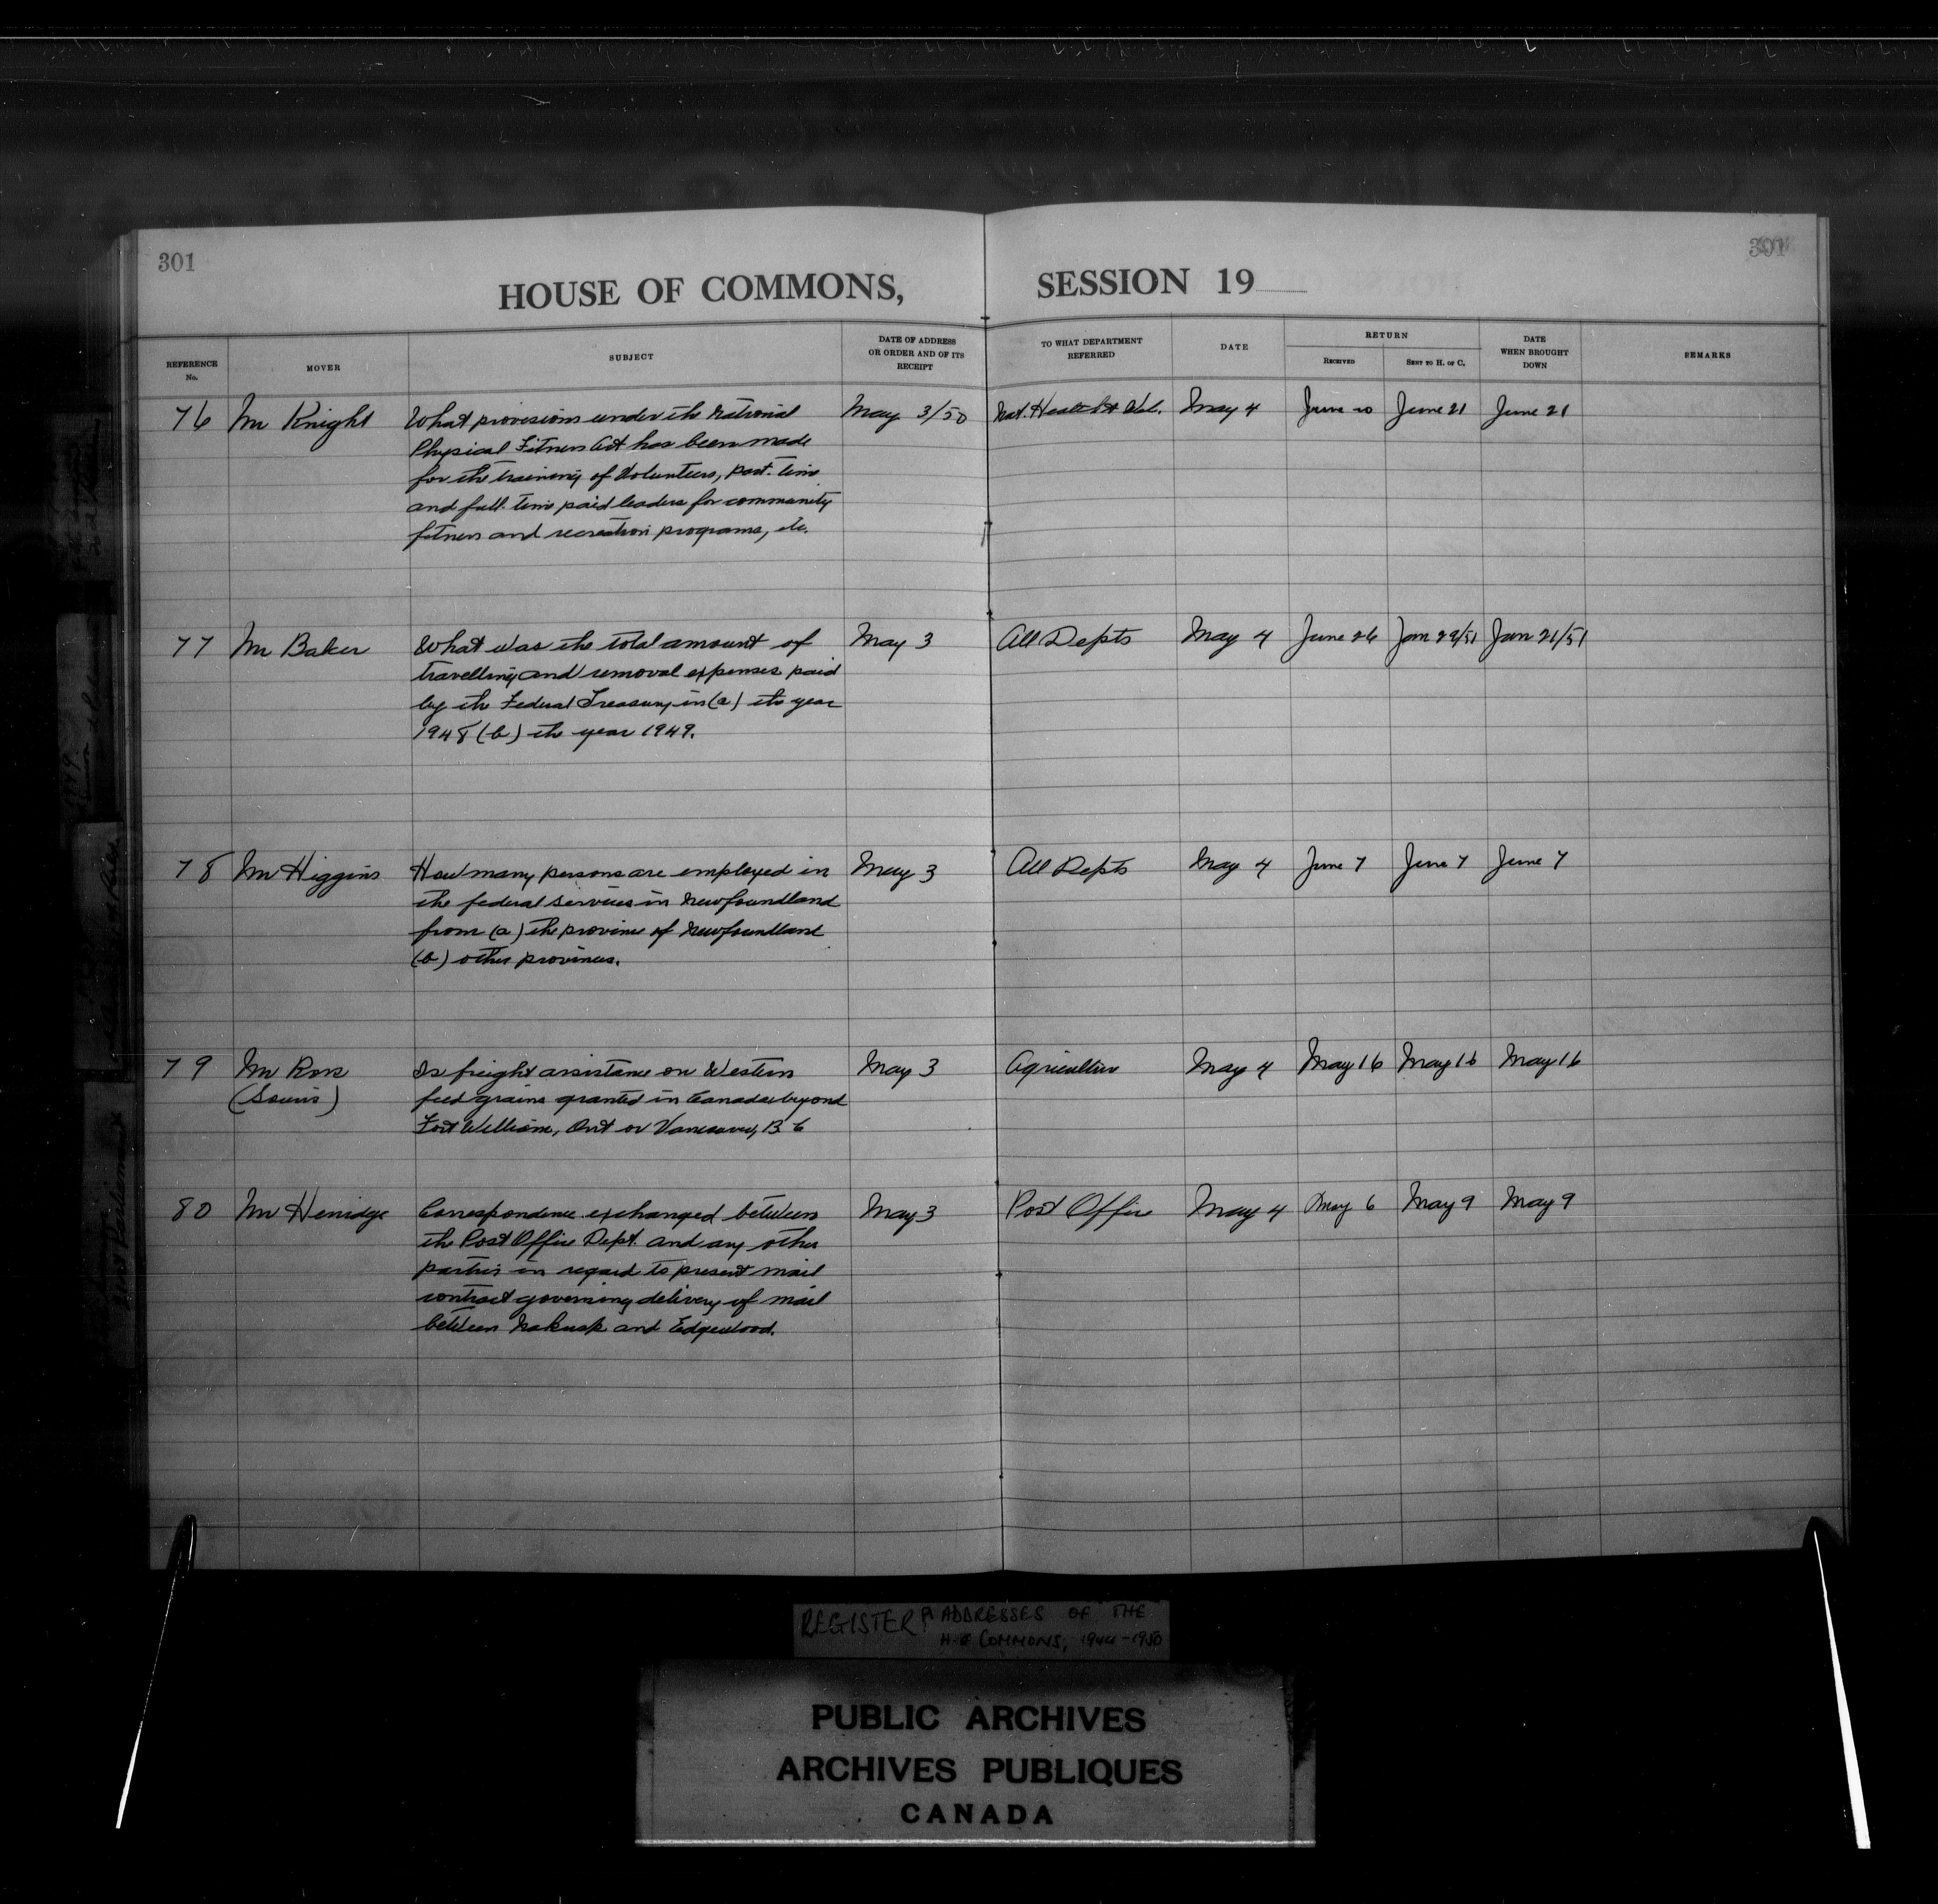 301
301
HOUSE OF COMMONS, SESSION 19
REFERENCE No.
MOVER
SUBJECT
DATE OF ADDRESS OR ORDER AND OF ITS RECEIPT
TO WHAT DEPARTMENT REFERRED
DATE
RETURN
RECEIVED
SENT TO H. OF C.
DATE WHEN BROUGHT DOWN
REMARKS
76 Mr Knight What provisions under the National May 3/50 Nat. Health & Wel. May 4 June 20 June 21 June 21
Physical Fitness Act has been made
for the training of Volunteers, part-time
and full-time paid leaders for community
fitness and recreation programs, etc.
77 Mr Baker What was the total amount of May 3 All Depts May 4 June 26 Jan 29/51 Jan 21/51
travelling and removal expenses paid
by the Federal Treasury in (a) the year
1948 (b) the year 1949.
78 Mr Higgins How many persons are employed in May 3 All Depts May 4 June 7 June 7 June 7
the federal services in Newfoundland
from (a) the province of Newfoundland
(b) other provinces.
79 Mr Ross Is freight assistance on Western May 3 Agriculture May 4 May 16 May 16 May 16
(Souris) feed grains granted in Canada beyond
Fort William, Ont or Vancouver, B C
80 Mr Herridge Correspondence exchanged between May 3 Post Office May 4 May 6 May 9 May 9
the Post Office Dept. and any other
parties in regard to present mail
contract governing delivery of mail
between Nakusp and Edgewood.
REGISTER OF ADDRESSES OF THE
H OF COMMONS, 1944-1950
PUBLIC ARCHIVES
ARCHIVES PUBLIQUES
CANADA